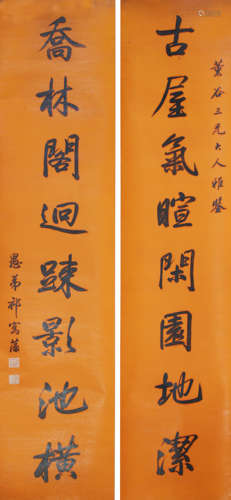 薰谷三兄大人雅鑒
古屋氣暄閑園地潔
喬林閣迥踈影池橫
愚弟祁寯藻